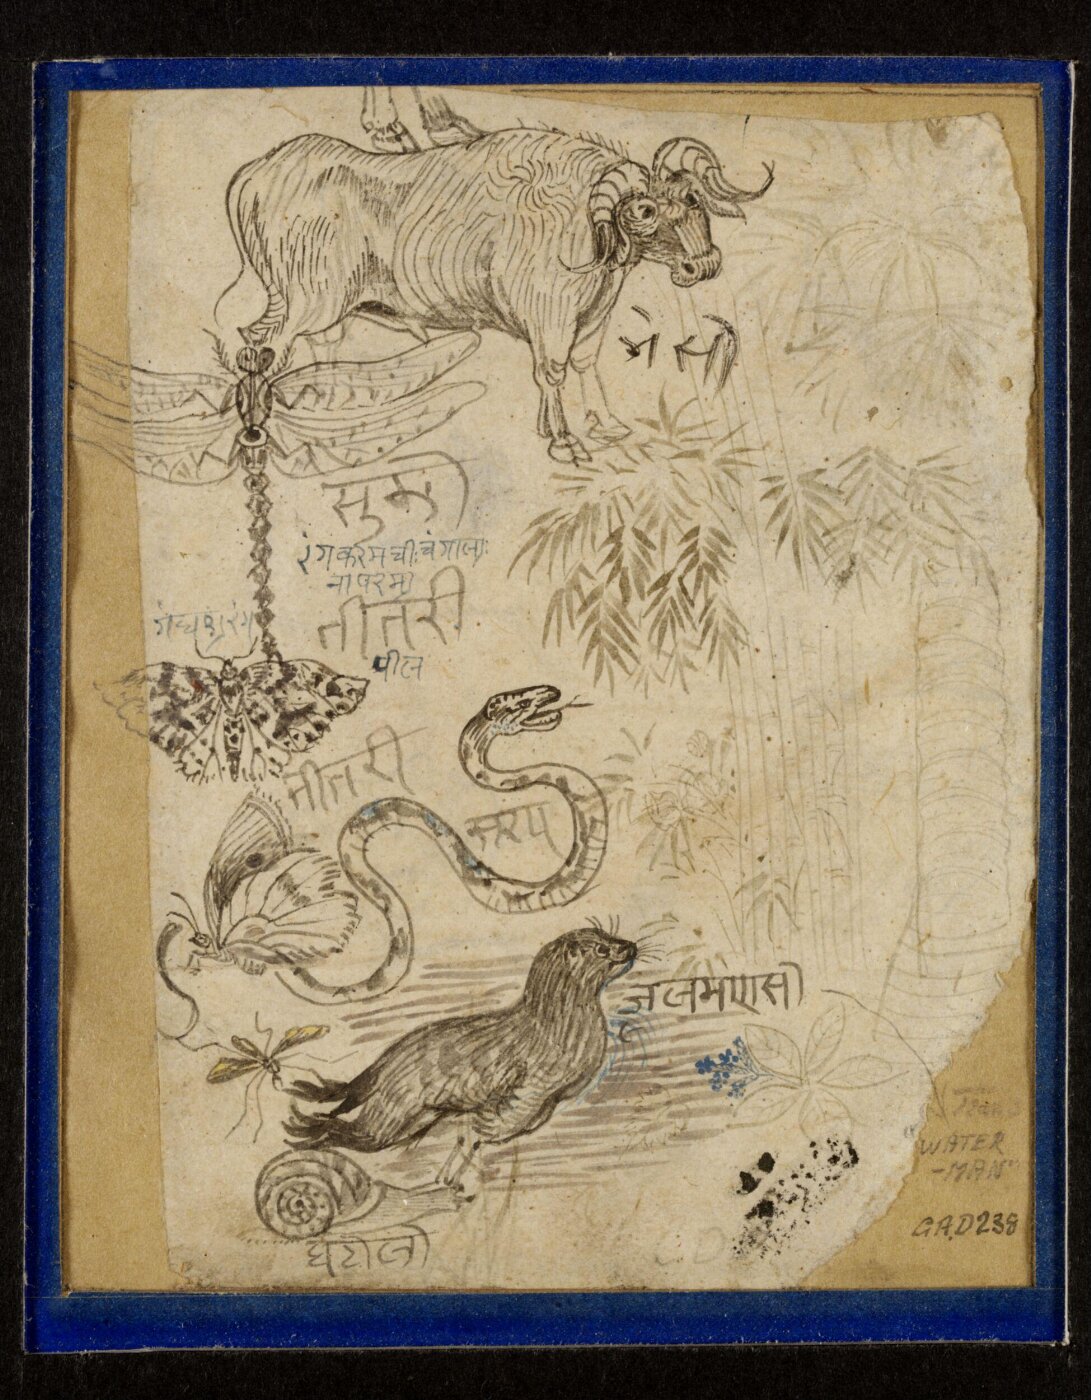 भेसो
सुमु
रंगकरमची:बंगाला:
नापरमा
तीतरी
पीला
तीतरी
सरप
जलमाणसो
घटोलो
Trans
WATER
-MAN"
GA,D238